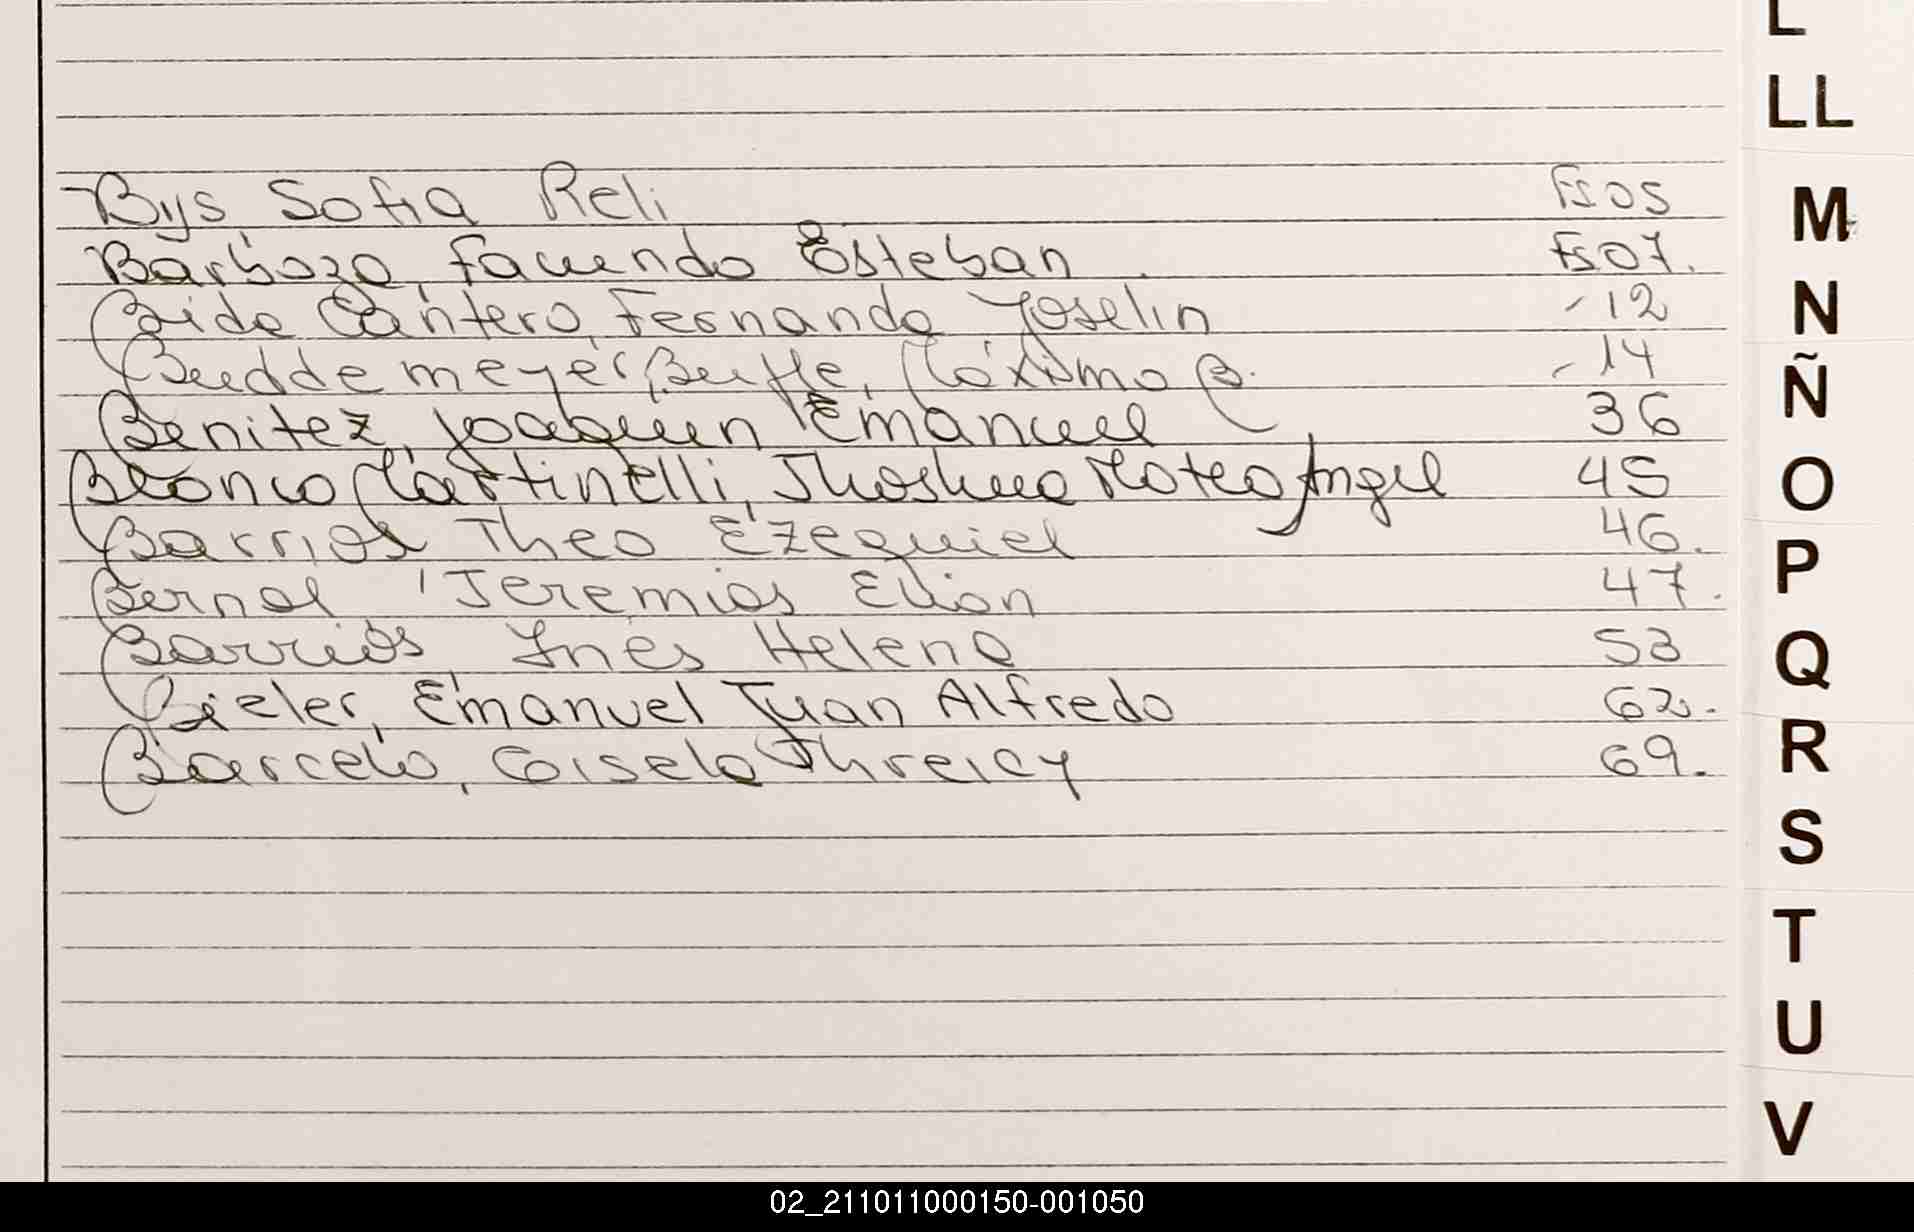 L
LL
Bys Sofia Reli Fs 05
Barboza, Facundo Esteban Fs 07.
M
Bida Cantero, Fernanda Joselin - 12
N
Buddemeyer, Máximo B. - 14
Ñ
Benitez, Joaquin Emanuel 36
Blanco Martinelli, Jhoshua Mateo Angel 45
O
Barrios Theo Ezequiel 46.
P
Bernal Jeremias Elian 47.
Barrios, Ines Helena 53
Q
Bieler, Emanuel Juan Alfredo 62.
R
Barcelo, Gisela Threicy 69.
S
T
U
V
02_211011000150-001050